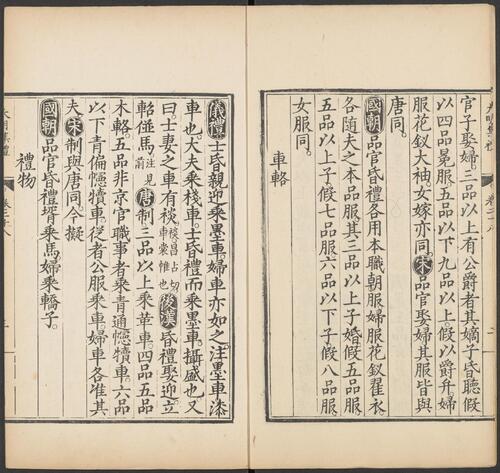 官子娶婦三品以上有公爵者其嫡子昏聽假
以四品冕服五品以下九品以上假以爵弁婦
服花釵大袖女嫁亦同宋品官娶婦其服皆與
唐同
國朝品官昏禮各用本職朝服婦服花釵翟衣
各隨夫之本品服其三品以上子婚假五品服
五品以上子假七品服六品以下子假八品服
女服同
車輅
儀禮士昏親迎乘墨車婦車亦如之注墨車漆
車也大夫乘棧車士昏禮而乘墨車攝盛也又
曰士妻之車有裧裧昌占切車裳帷也後漢昏禮娶迎立
軺倂馬注見前唐制三品以上乘革車四品五品
木輅五品非京官職事者乘青通幰犢車六品
以下青偏幰犢車從者公服乘車婦車各准其
夫宋制與唐同今擬
國朝品官昏禮壻乘馬婦乘轎子
禮物